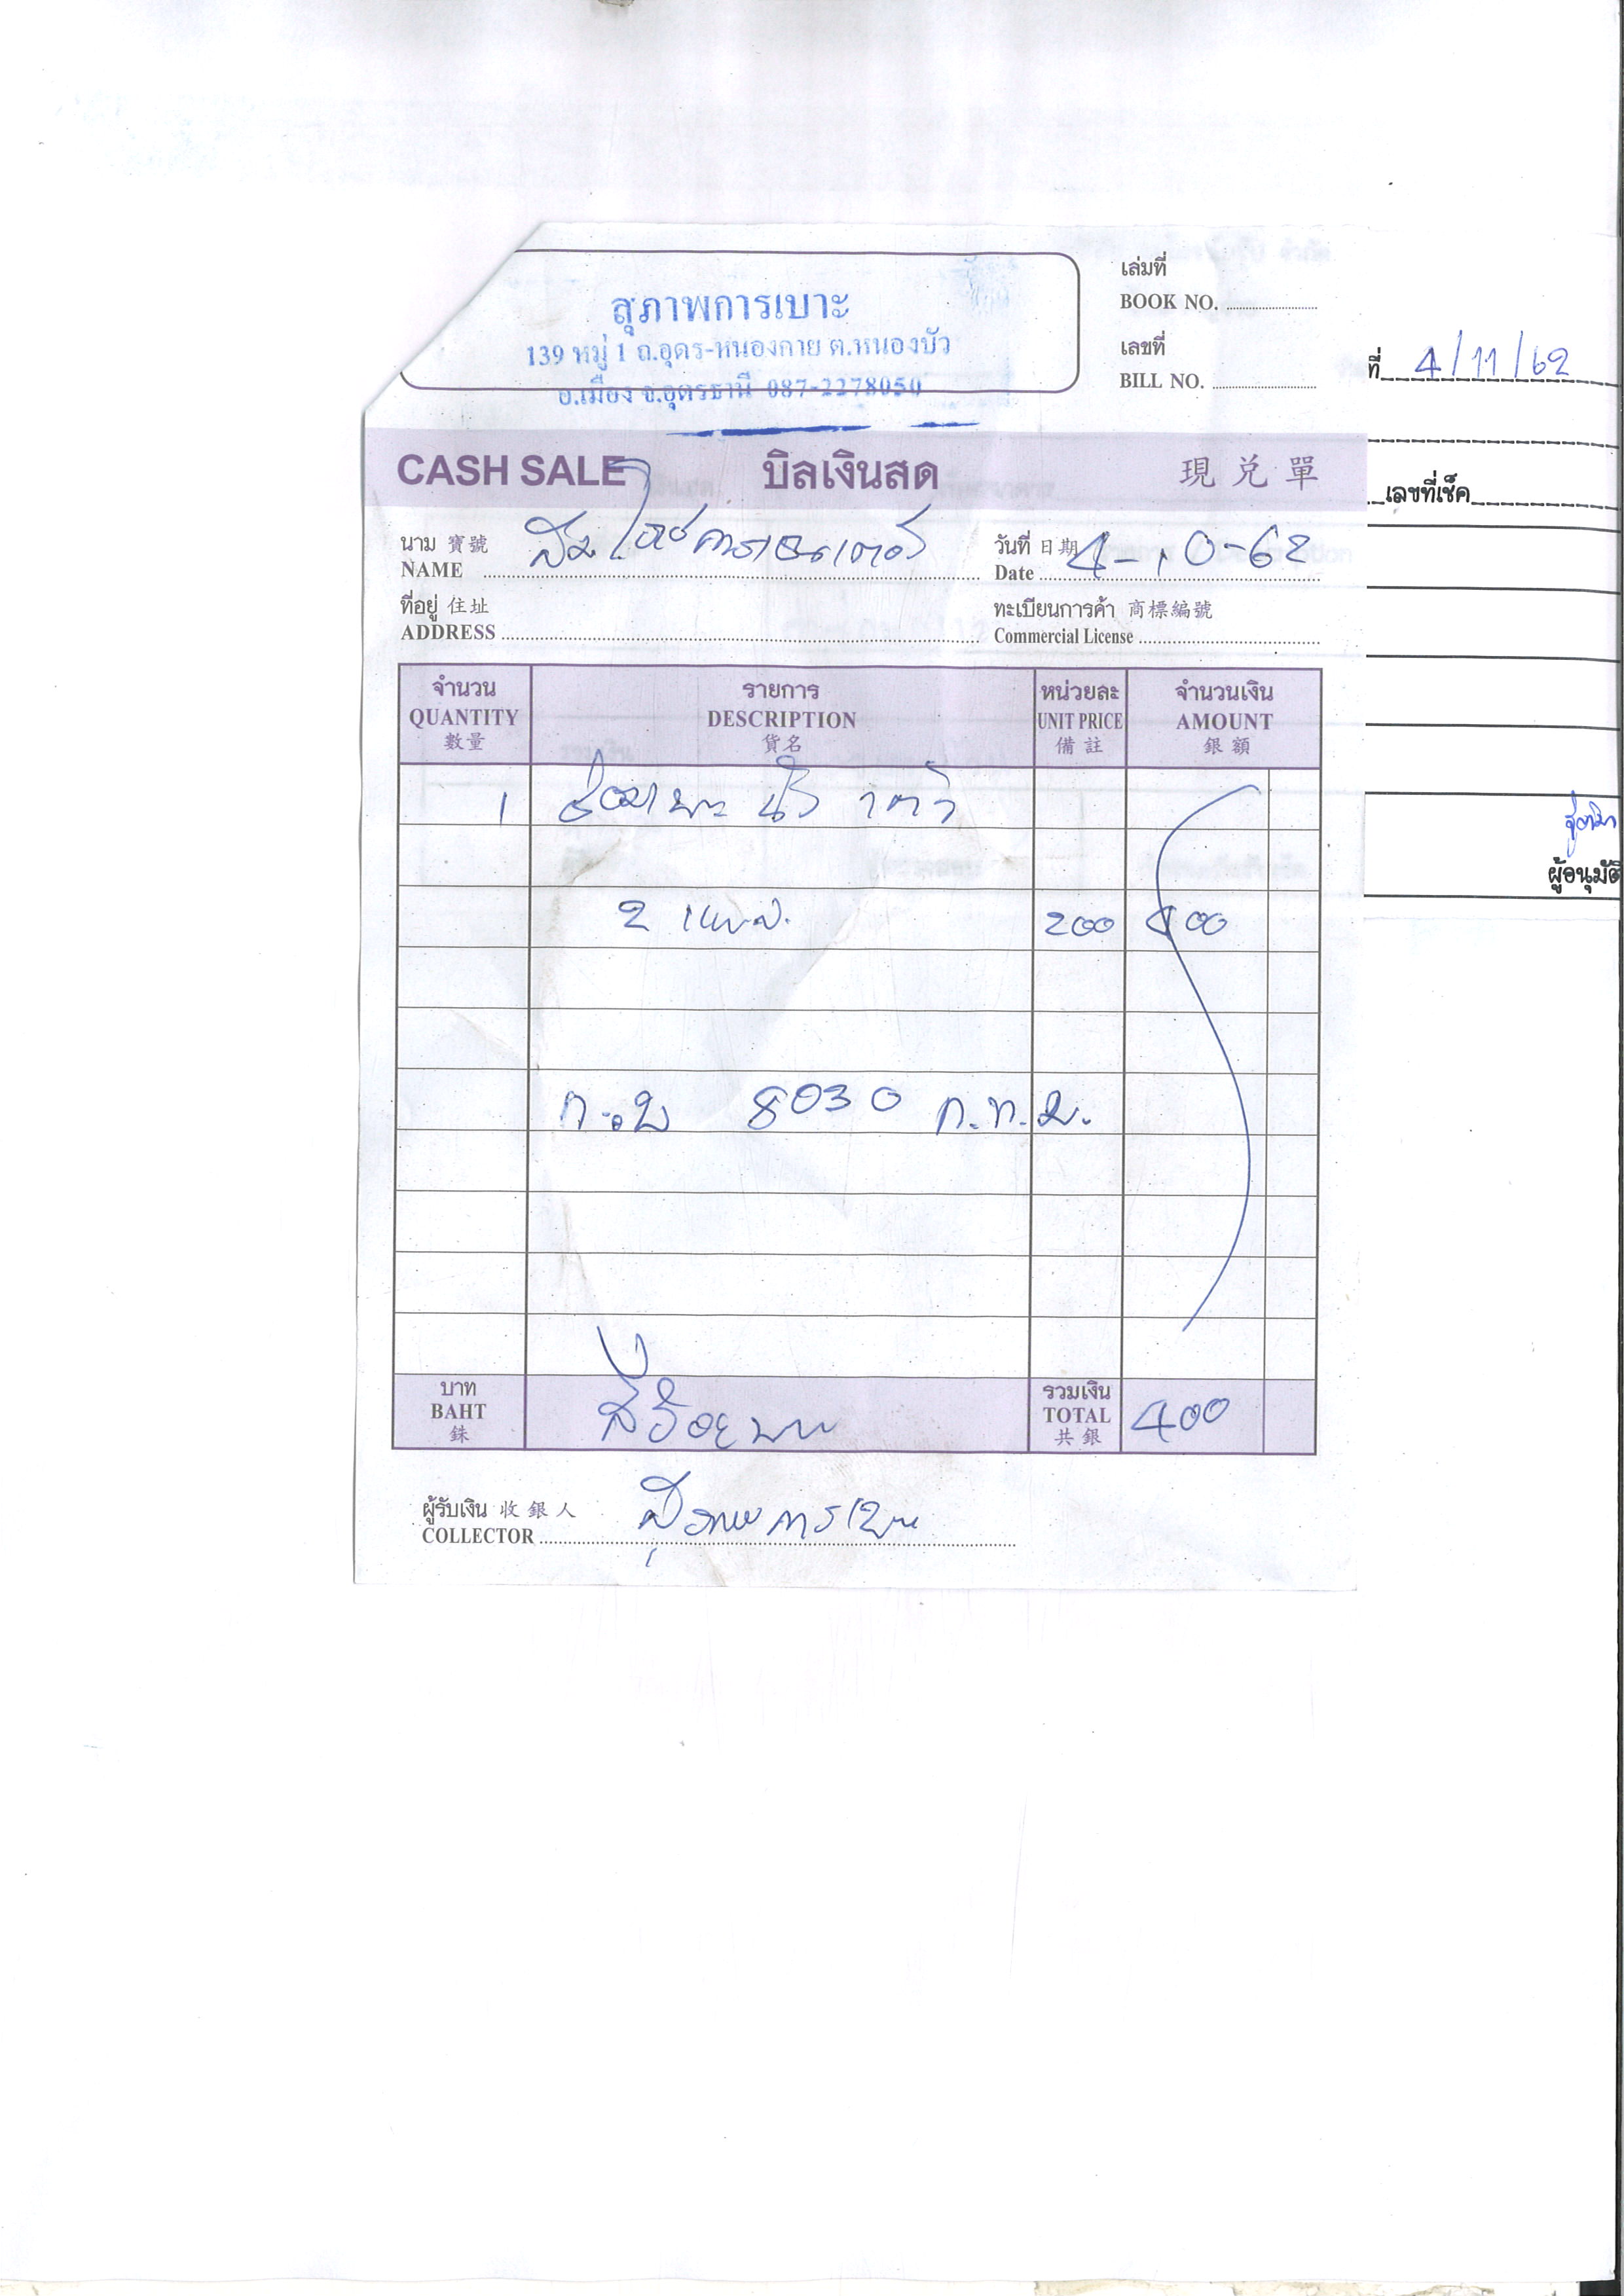 สุภาพการเบาะ
139 หมู่ 1 ถ.อุดร-หนองคาย ต.หนองบัว
อ.เมือง จ.อุดรธานี 087-2278050
เล่มที่
BOOK NO.
เลขที่
BILL NO.
ที่ 4/11/62
CASH SALE บิลเงินสด 現兌單
เลขที่เช็ค
นาม 寶號
NAME
วันที่ 日期
Date 4-10-62
ที่อยู่ 住址
ADDRESS
ทะเบียนการค้า 商標編號
Commercial License
จำนวน รายการ หน่วยละ จำนวนเงิน
QUANTITY DESCRIPTION UNIT PRICE AMOUNT
數量 貨名 備註 銀額
1 ซ่อมเบาะ
2 200 400
8030 ก.ท.ม.
ผู้อนุมัติ
บาท
BAHT
銖
สี่ร้อยบาท
รวมเงิน
TOTAL
共銀
400
ผู้รับเงิน 收銀人
COLLECTOR สุภาพการเบาะ